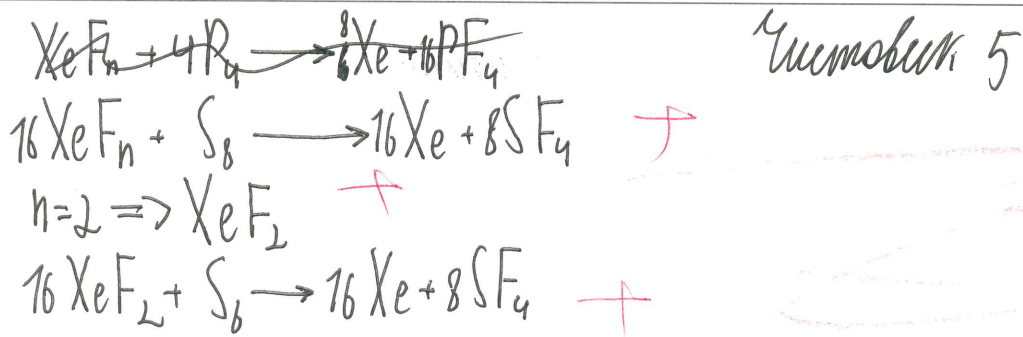 XeFₙ + 4P₄ → 8Xe + 16PF₄
Чистовик 5
16XeFₙ + S₈ → 16Xe + 8SF₄ +
n=2 => XeF₂ +
16XeF₂ + S₈ → 16Xe + 8SF₄ +